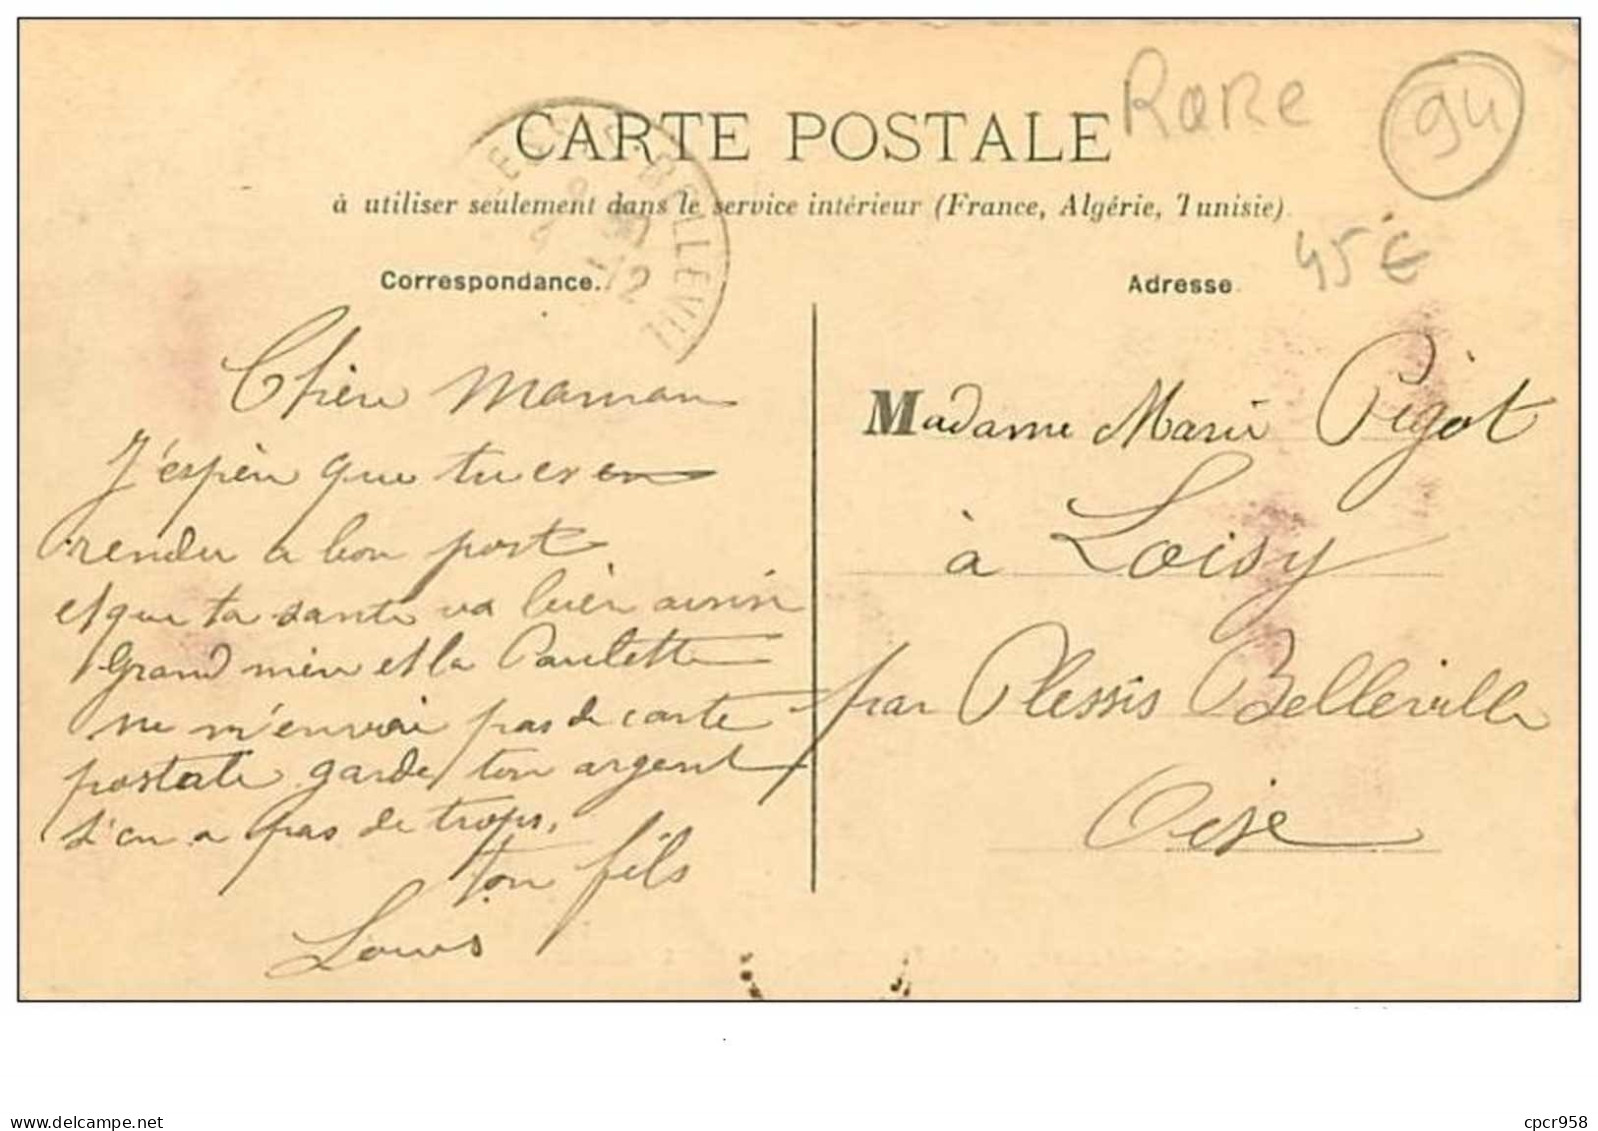 CARTE POSTALE
Rare
94
à utiliser seulement dans le service intérieur (France, Algérie, Tunisie).
45 €
Correspondance.
Adresse
BELLEVIL
Chère Maman
J'espère que tu es en
rendu a bon port
et que ta santé va bien ainsi
Grand mère et la Paulette
ne m'envoie pas de carte
postale garde ton argent
t'en a pas de trops.
ton fils
Louis
Madame Marie Pigot
à Loisy
par Plessis Belleville
Oise
www.delcampe.net
cpcr958